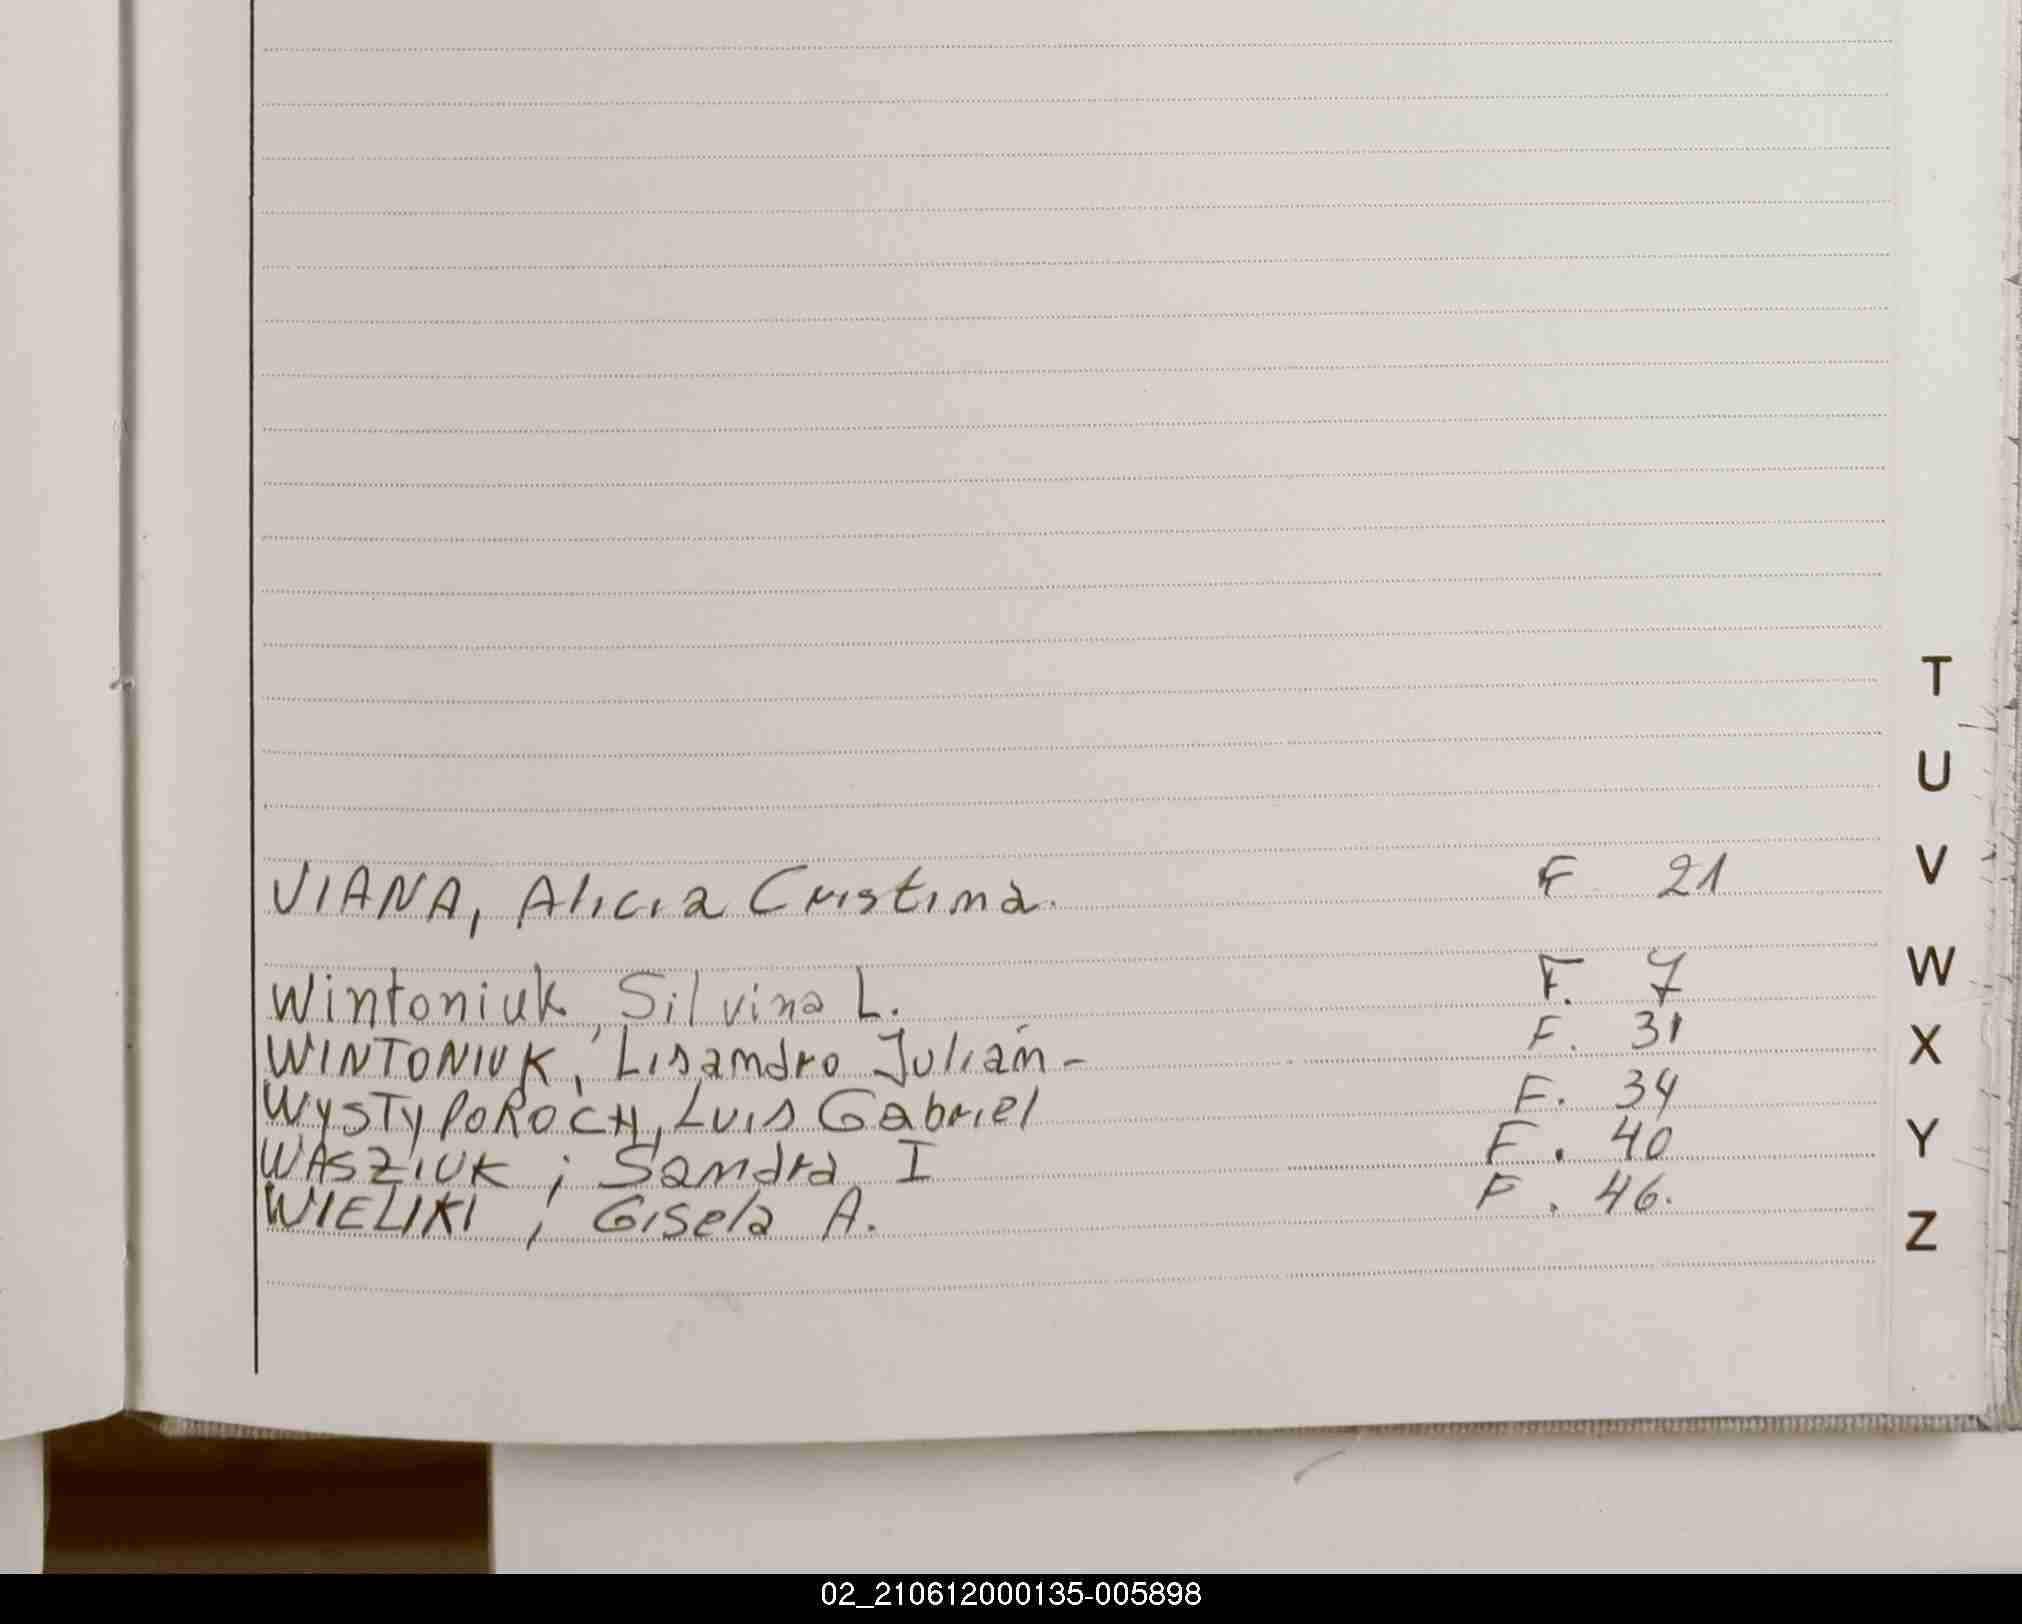 T
U
V
VIANA, Alicia Cristina. F 21
W
Wintoniuk, Silvina L. F. 7
WINTONIUK, Lisandro Julián - F. 31
X
WYSTYPOROCH, Luis Gabriel F. 34
Y
WASZIUK, Sandra I F. 40
WIELIKI, Gisela A. F. 46.
Z
02_210612000135-005898